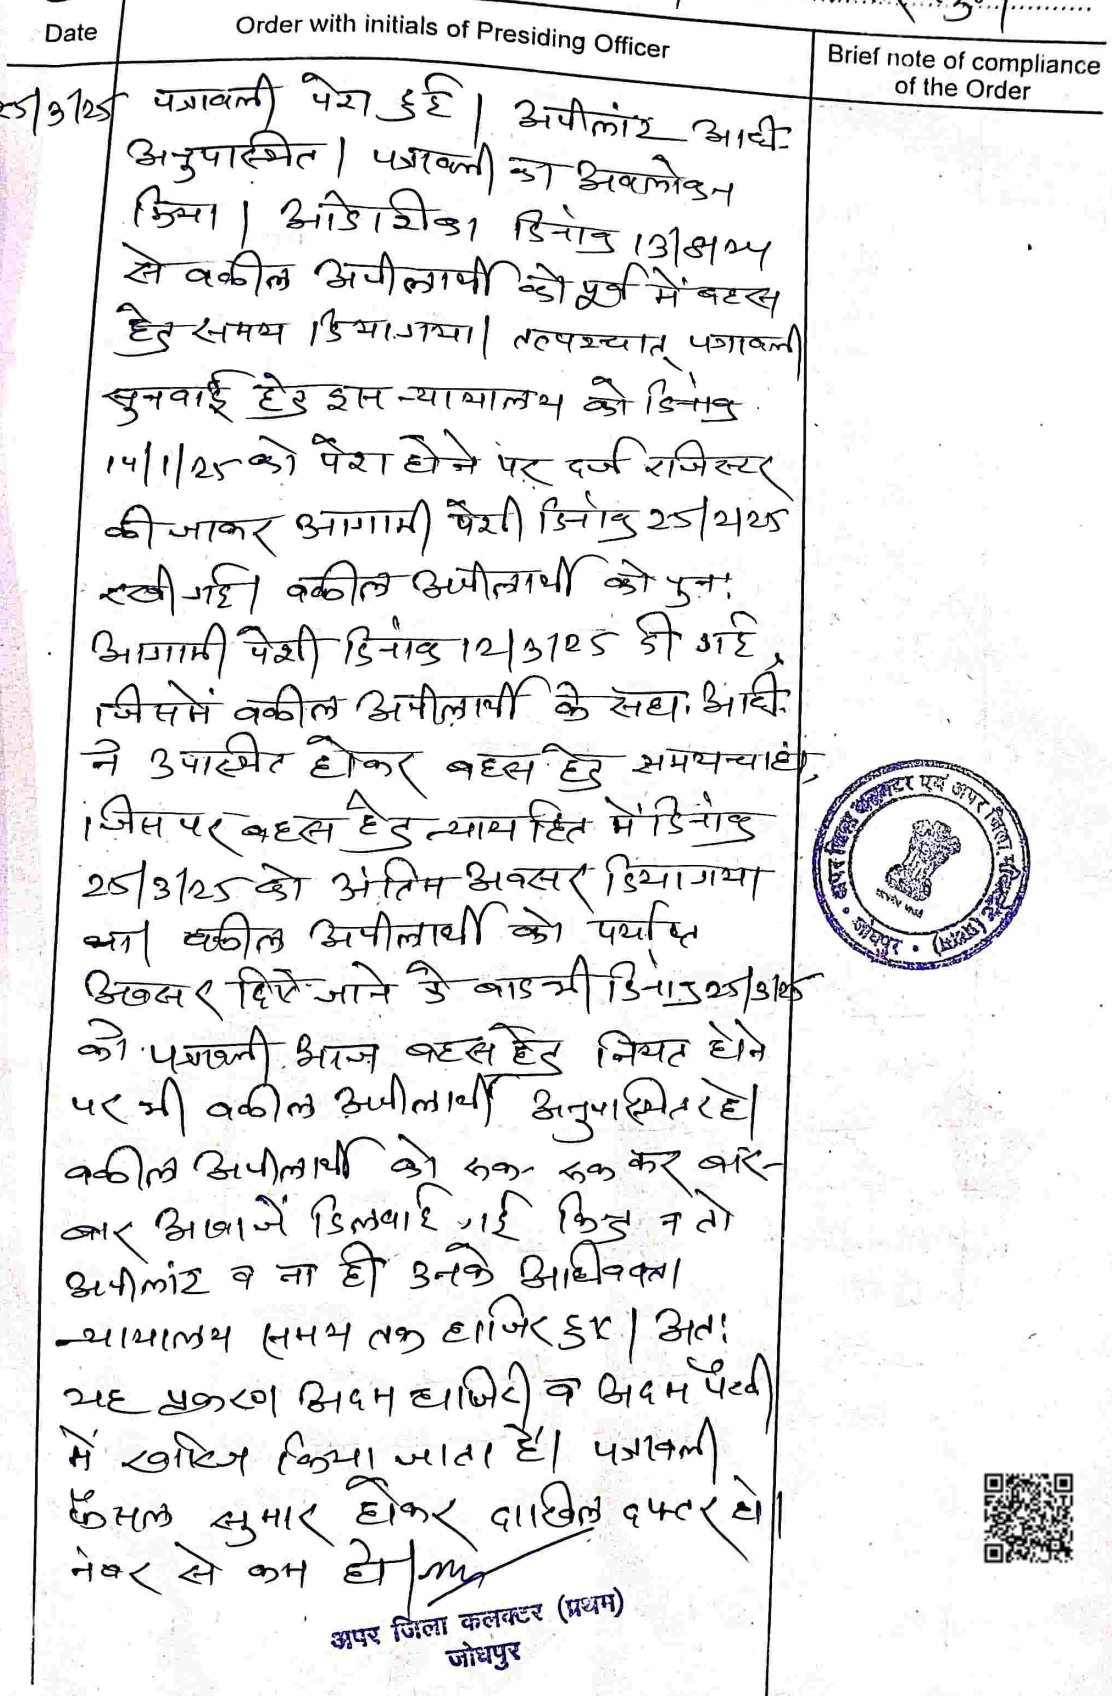 Date
Order with initials of Presiding Officer
Brief note of compliance
of the Order
25/3/25 पत्रावली पेश हुई। अपीलांट अधि.
अनुपस्थित। पत्रावली का अवलोकन
किया। आर्डरशीका दिनांक 13/8/24
से वकील अपीलार्थी को पूर्व में बहस
हेतु समय दिया गया। तत्पश्चात् पत्रावली
सुनवाई हेतु इस न्यायालय को दिनांक
14/1/25 को पेश होने पर दर्ज रजिस्टर
की जाकर आगामी पेशी दिनांक 25/2/25
रखी गई। वकील अपीलार्थी को पुनः
आगामी पेशी दिनांक 12/3/25 दी गई,
जिसमें वकील अपीलार्थी के सहा. अधि.
ने उपस्थित होकर बहस हेतु समय चाहा,
जिस पर बहस हेतु न्यायहित में दिनांक
25/3/25 को अंतिम अवसर दिया गया
था। वकील अपीलार्थी को पर्याप्त
अवसर दिये जाने के बाद भी दिनांक 25/3/25
को पत्रावली आज बहस हेतु नियत होने
पर भी वकील अपीलार्थी अनुपस्थित रहे।
वकील अपीलार्थी को रूक-रूक कर बार-
बार आवाजें दिलवाई गई किन्तु न तो
अपीलांट व ना ही उनके अधिवक्ता
न्यायालय समय तक हाजिर हुए। अतः
यह प्रकरण अदम हाजिरी व अदम पैरवी
में खारिज किया जाता है। पत्रावली
फैसल सुमार होकर दाखिल दफ्तर हो।
नंबर से कम हो।
अपर जिला कलक्टर (प्रथम)
जोधपुर
अपर जिला कलक्टर एवं अपर जिला मजिस्ट्रेट (प्रथम) जोधपुर